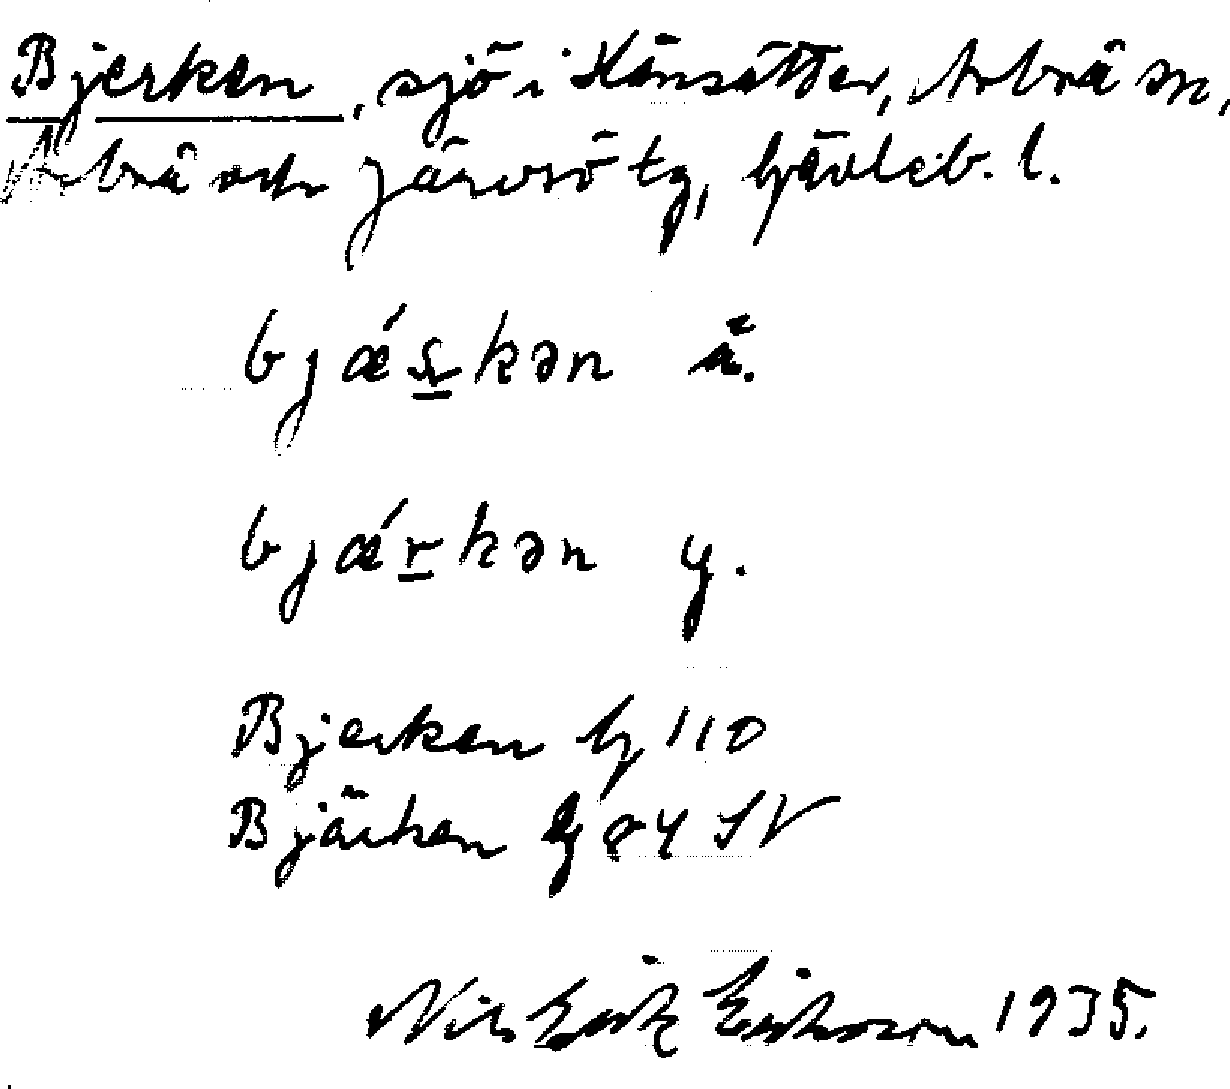 Bjerken, sjö i Hänsätter, Arbrå sn,
Arbrå och Järvsö tg, Gävleb. l.
bjǽs̠kən ä.
bjǽr̠kən y.
Bjerken G 110
Bjärken G 84 SV
Nils Erik Eriksson 1935.